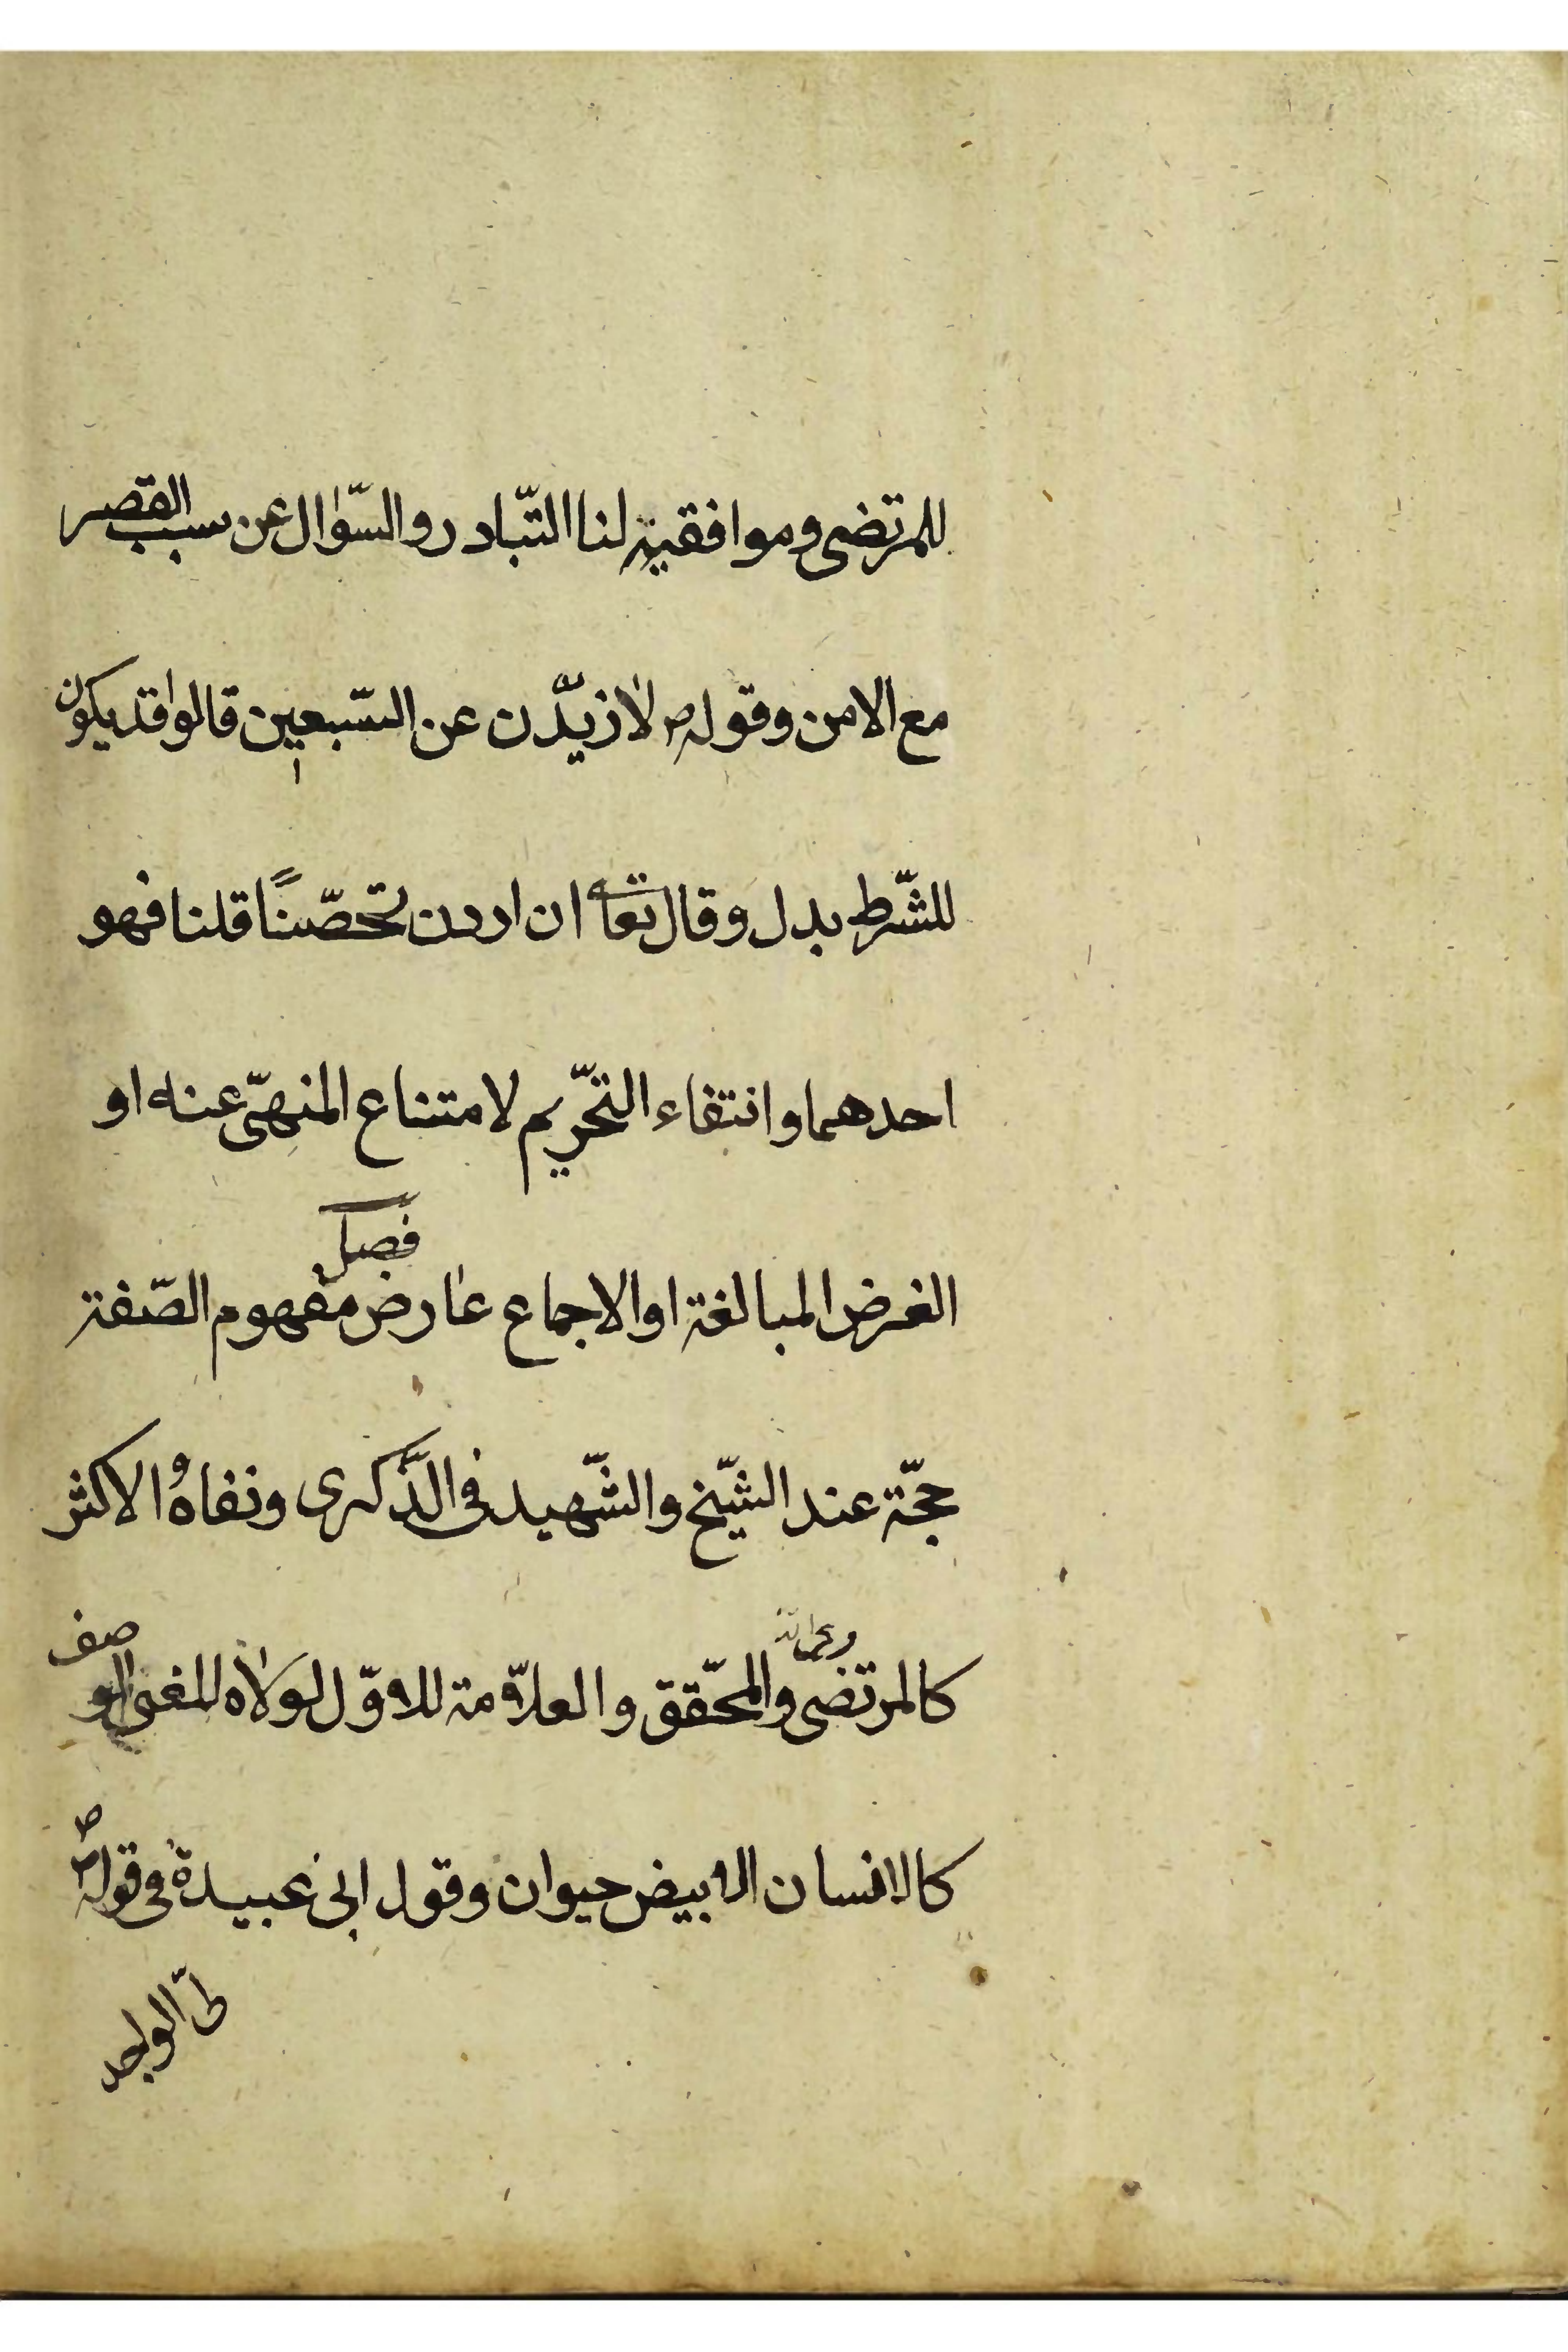 للمرتضى وموافقيه لنا التّبادر والسّؤال عن سبب القصر
مع الامن وقوله ص لازيدّن عن السّبعين قالوا قد يكون
للشّرط بدل وقال تعا ان اردن تحصّنًا قلنا فهو
احدهما وانتفاء التحّريم لامتناع المنهىّ عنه او
فصل
الغرض المبالغة او الاجماع عارض مفهوم الصّفة
حجّة عند الشّيخ والشّهيد فى الذّكرى ونفاهُ الاكثر
كالمرتضى والمحّقق والعلاّمة للاوّل لولاه للغى الوصف
كالانسان الابيض حيوان وقول ابى عبيدة فى قوله ص
لىّ الواجد